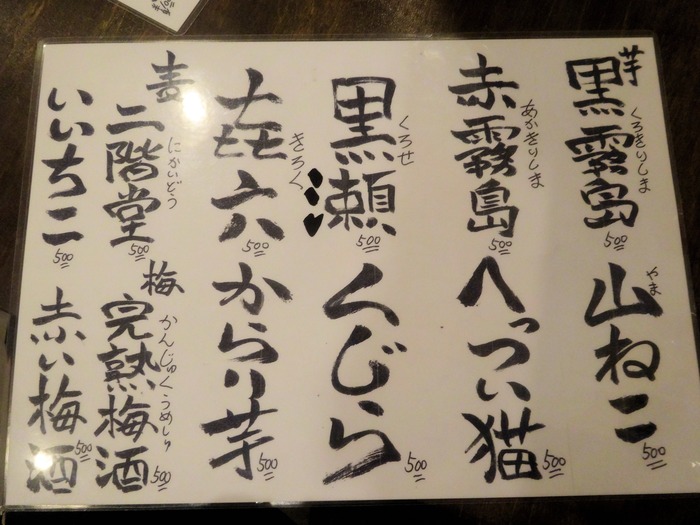 芋
黒霧島
くろきりしま
500
山ねこ
やま
500
赤霧島
あかきりしま
500
へっつい猫
500
黒瀬
くろせ
500
くじら
500
㐂六
きろく
500
からり芋
500
麦
二階堂
にかいどう
500
いいちこ
500
梅
完熟梅酒
かんじゅくうめしゅ
500
赤い梅酒
500